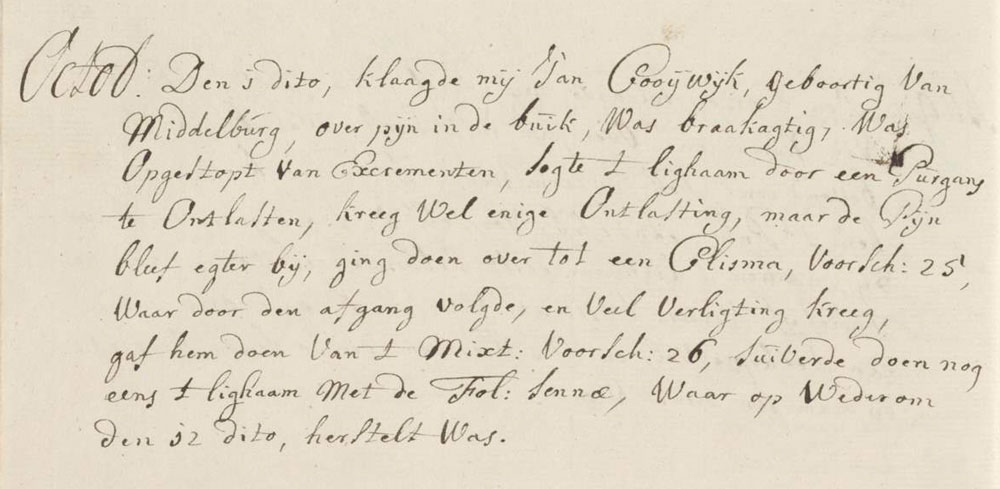 Octob: Den 1 dito, klaagde mij Jan Cooijwijk, geboortig van
Middelburg, over pijn in de buik, Was braakagtig, Was
Opgestopt van Excrementen, sogte t lighaam door een Purgans
te Ontlasten, kreeg Wel enige Ontlasting, maar de Pijn
bleef egter bij, ging doen over tot een Clisma, Voorsch: 25,
Waar door den afgang volgde, en Veel Verligting kreeg,
gaf hem doen Van t Mixt: Voorsch: 26, suiverde doen nog
eens t lighaam Met de Fol: Sennæ, Waar op Wederom
den 12 dito, herstelt Was.